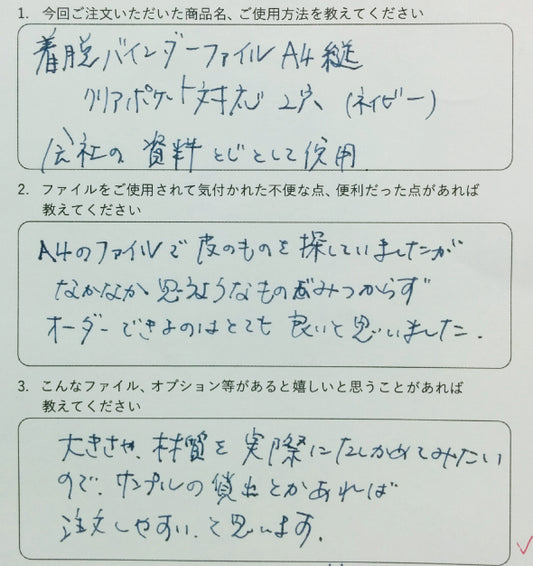 1. 今回ご注文いただいた商品名、ご使用方法を教えてください
着脱バインダーファイル A4 縦
クリアポケット対応 2穴 (ネイビー)
会社の資料とじとして使用
2. ファイルをご使用されて気付かれた不便な点、便利だった点があれば
教えてください
A4のファイルで皮のものを探していましたが
なかなか思うようなものがみつからず
オーダーできるのはとても良いと思いました.
3. こんなファイル、オプション等があると嬉しいと思うことがあれば
教えてください
大きさや、材質を実際にたしかめてみたい
ので、サンプルの貸出とかあれば
注文しやすい、と思います.